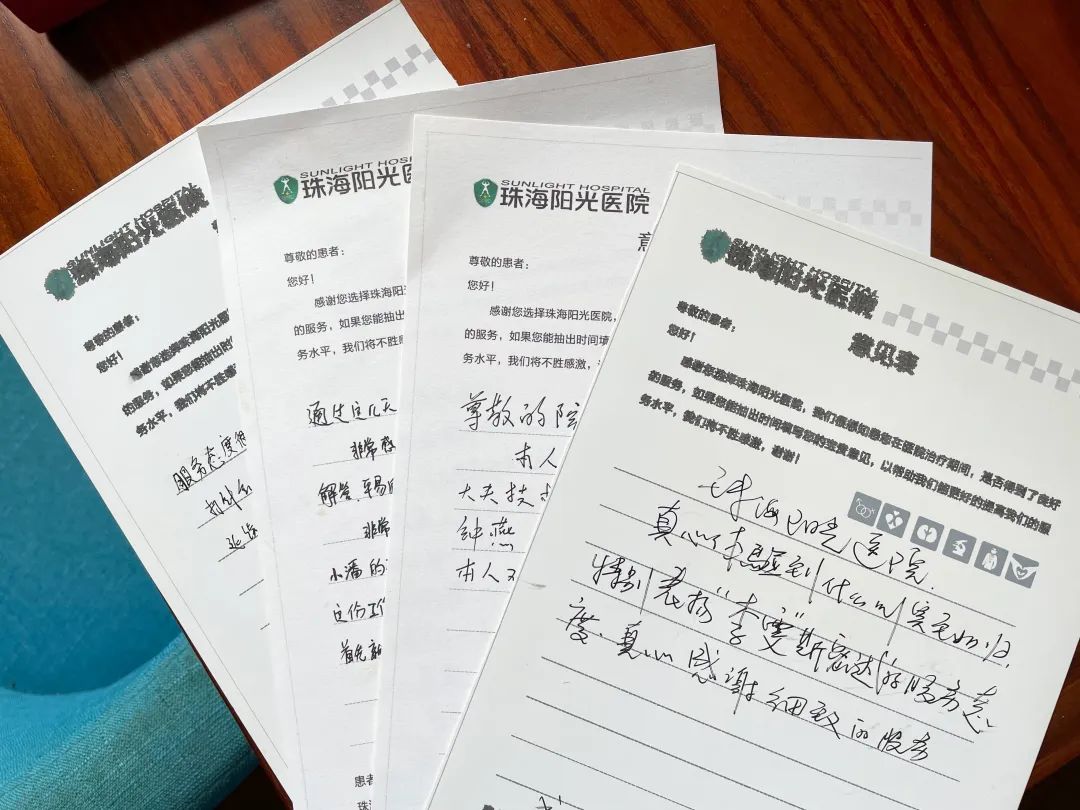 SUNLIGHT HOSPITAL
珠海阳光医院
尊敬的患者：
您好！
感谢您选择珠海阳光医
的服务，如果您能抽出时
务水平，我们将不胜感
服务态度很
SUNLIGHT HOSP
珠海阳光医
尊敬的患者：
您好！
感谢您选择珠海阳
的服务，如果您能抽出
务水平，我们将不胜
通过这几天
非常
解答.平易
非常
小潘的
这份工作
首先
患者
珠海
SUNLIGHT HOSPITAL
珠海阳光医院
意
尊敬的患者：
您好！
感谢您选择珠海阳光医院，
的服务，如果您能抽出时间填
务水平，我们将不胜感激，
尊敬的院
本人
大夫技术
钟燕
本人又
SUNLIGHT HOSPITAL
珠海阳光医院
意见表
尊敬的患者：
您好！
感谢您选择珠海阳光医院，我们很想知道您在医院治疗期间，是否得到了良好
的服务，如果您能抽出时间填写您的宝贵意见，以帮助我们能更好的提高我们的服
务水平，我们将不胜感激，谢谢！
珠海阳光医院.
真心体驗到什么叫賓至如归.
特别表扬"李雯"斯 的服务态
度.真心感谢细致的服务